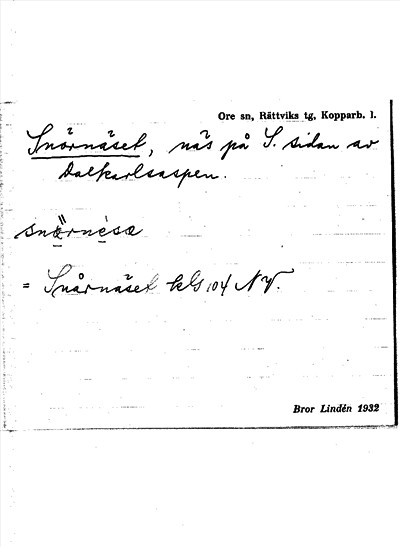 Ore sn, Rättviks tg, Kopparb. l.
Snörnäset, näs på S. sidan av
Dalkarlsaspen.
= Snårnäset kls 104 NV.
Bror Lindén 1932